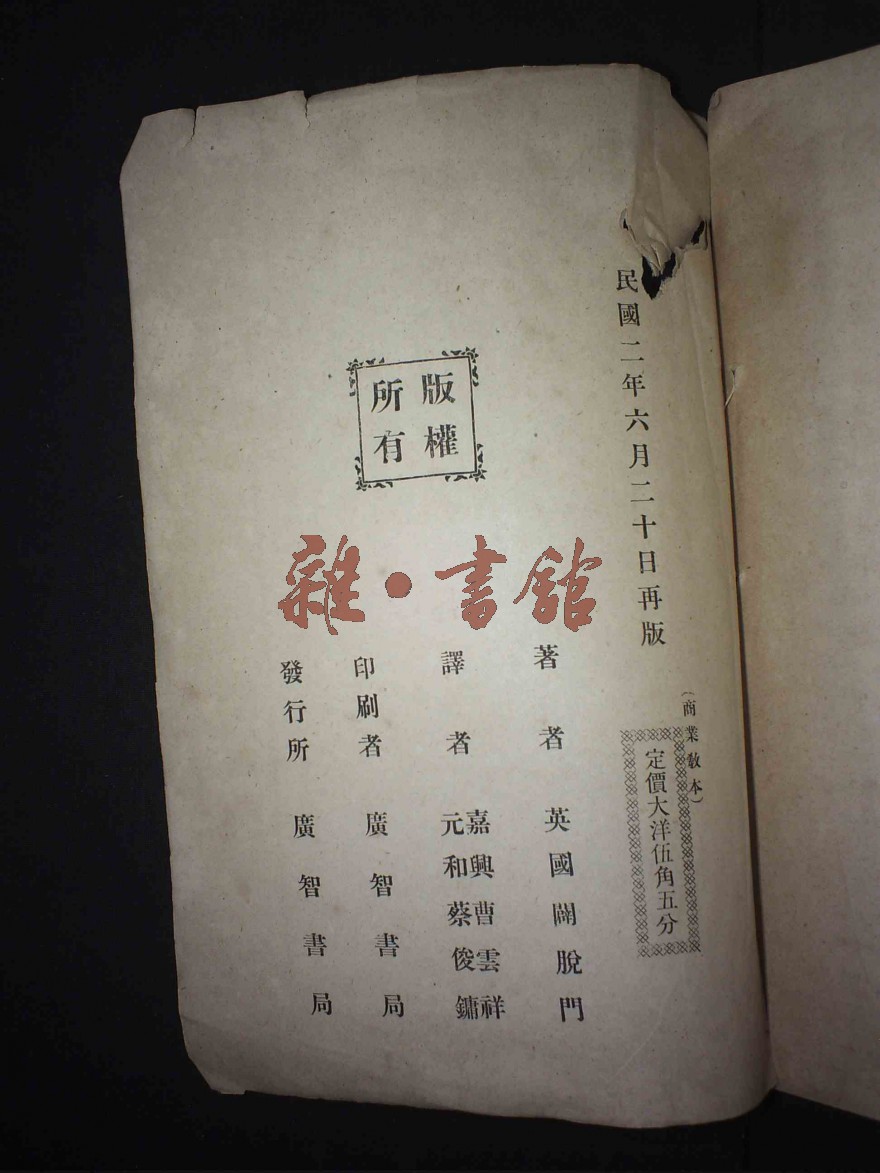 民國二年六月二十日再版
(商業教本)
定價大洋伍角五分
版權
所有
雜·書館
著者 英國闢脫門
譯者 嘉興曹雲祥
元和蔡俊鏞
印刷者 廣智書局
發行所 廣智書局